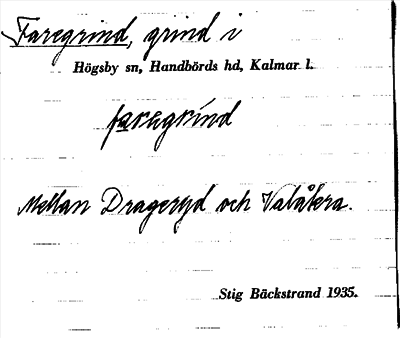 Faregrind, grind i
Högsby sn, Handbörds hd, Kalmar l.
faregrind
Mellan Drageryd och Valåkra.
Stig Bäckstrand 1935.